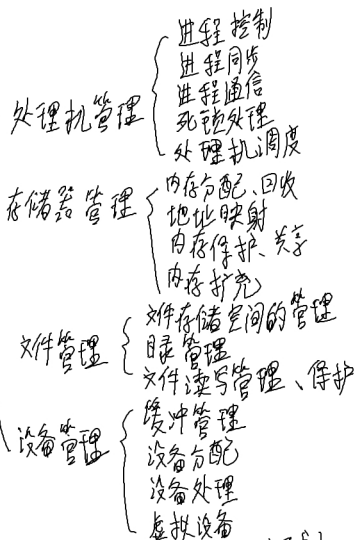 处理机管理
进程控制
进程同步
进程通信
死锁处理
处理机调度
存储器管理
内存分配、回收
地址映射
内存保护、共享
内存扩充
文件管理
文件存储空间的管理
目录管理
文件读写管理、保护
设备管理
缓冲管理
设备分配
设备处理
虚拟设备